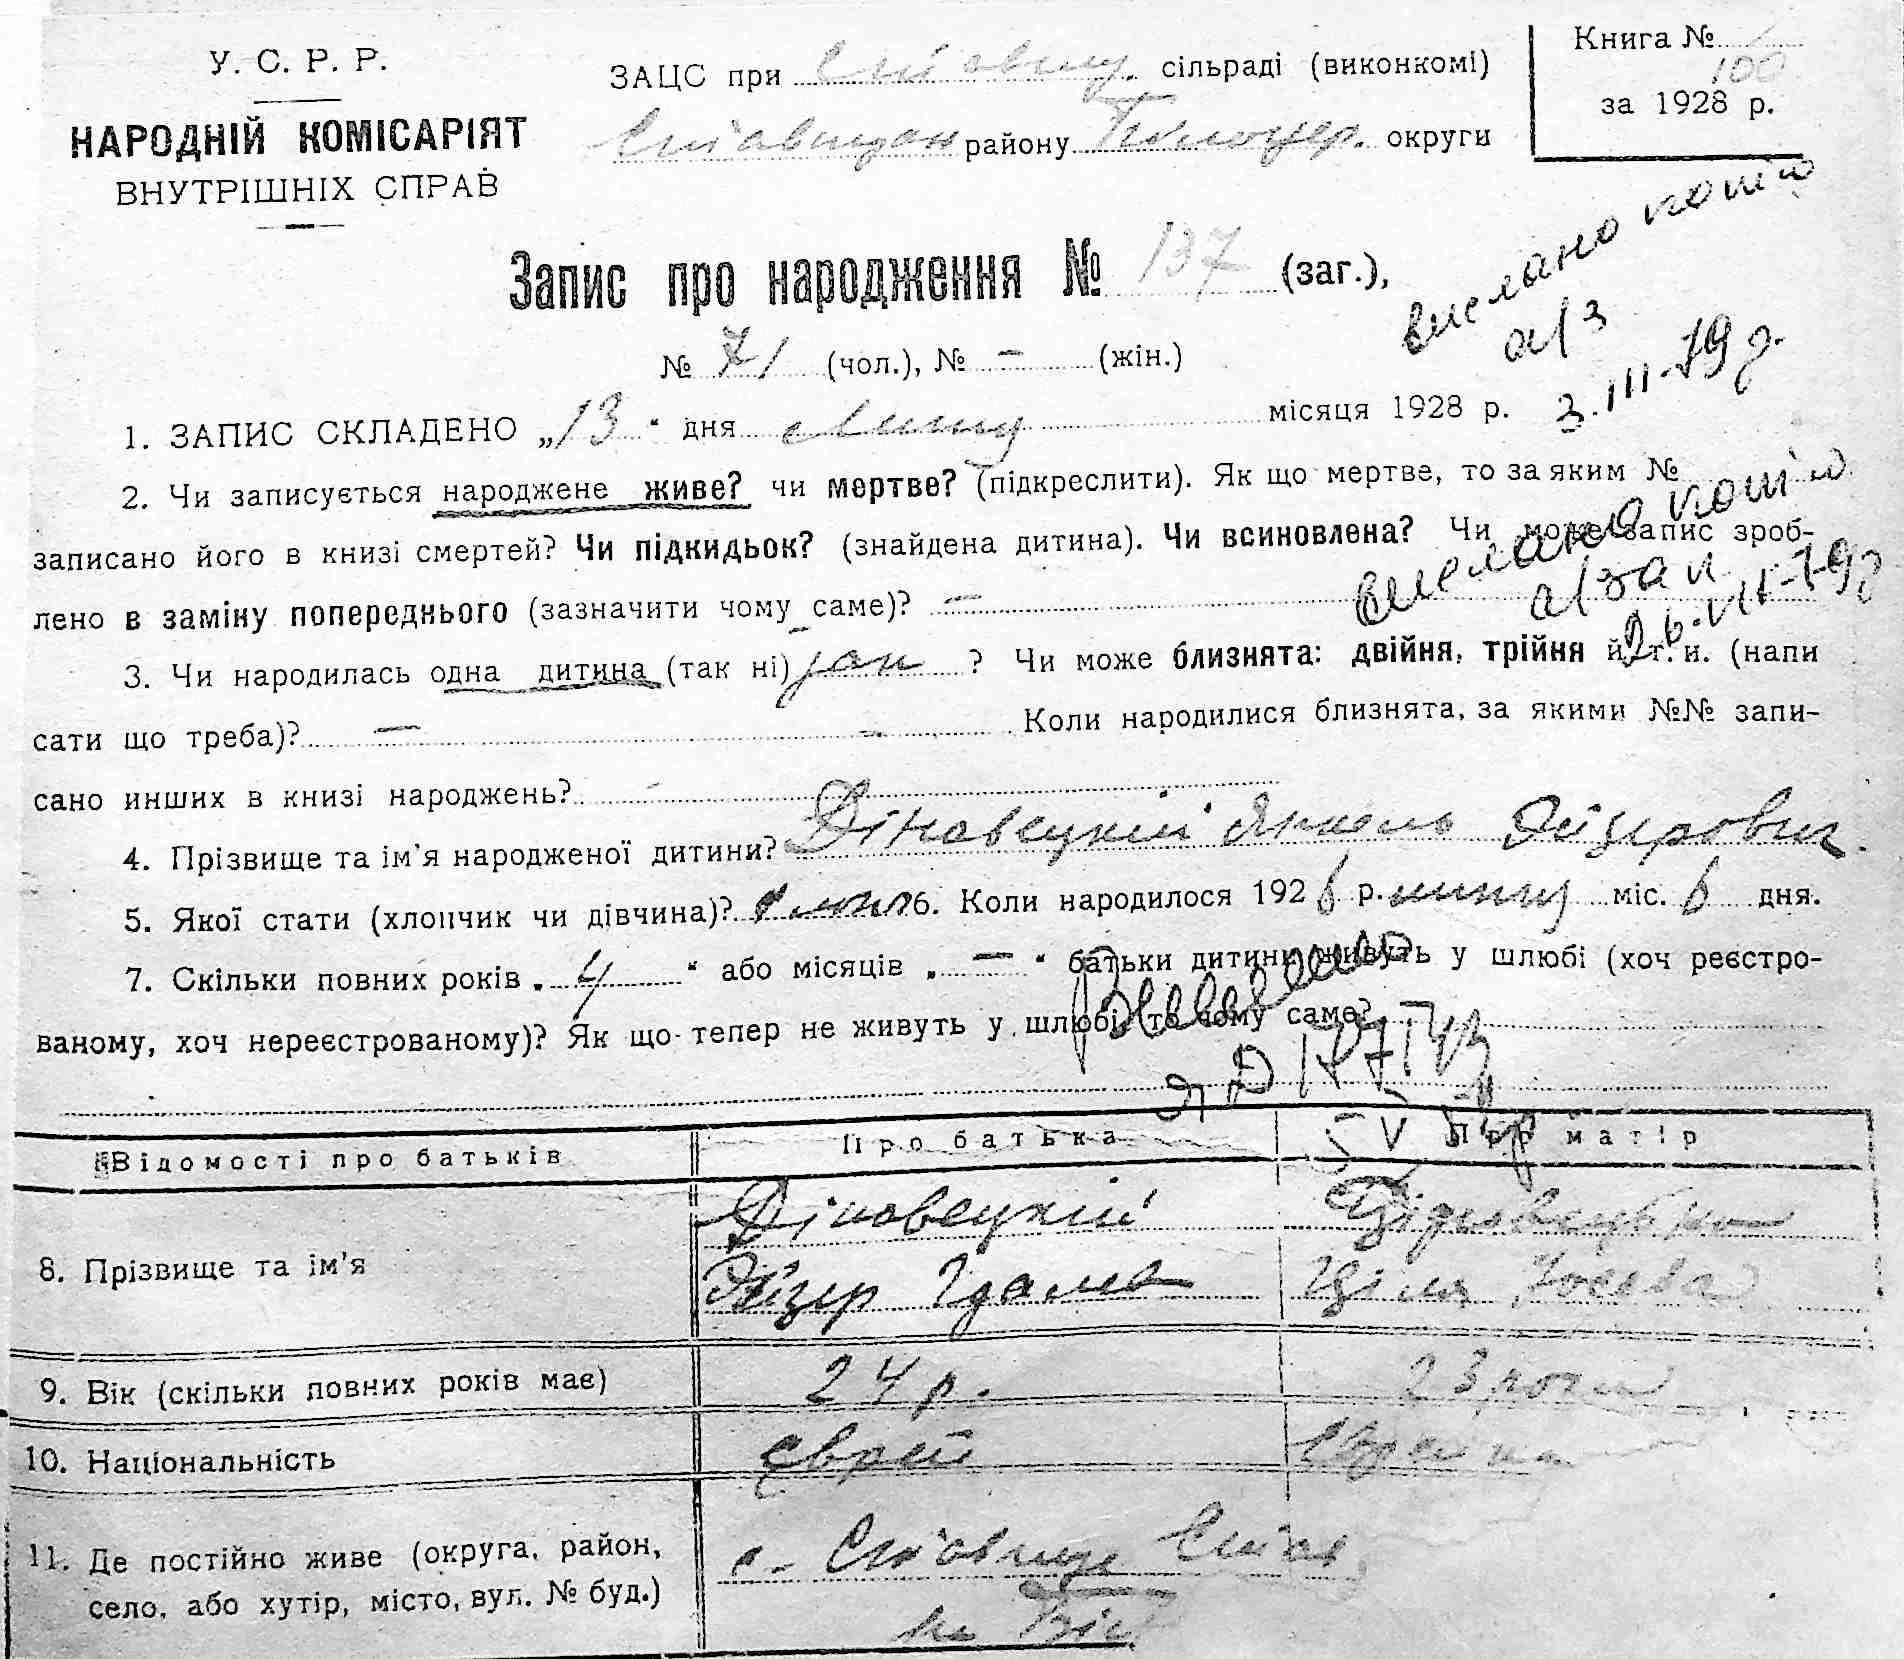 У. С. Р. Р.
НАРОДНІЙ КОМІСАРІЯТ
ВНУТРІШНІХ СПРАВ
ЗАЦС при Ставищ. сільраді (виконкомі)
Ставищан району Білоцер. округи
Книга №
100
за 1928 р.
Запис про народження № 137 (заг.),
№ 71 (чол.), № – (жін.)
вислано копію
а/з
3.III-79 г.
1. ЗАПИС СКЛАДЕНО „13" дня липня місяця 1928 р.
2. Чи записується народжене живе? чи мертве? (підкреслити). Як що мертве, то за яким №
записано його в книзі смертей? Чи підкидьок? (знайдена дитина). Чи всиновлена? Чи може запис зроб-
лено в заміну попереднього (зазначити чому саме)? —
вислано копію
а/зап
26.VII-79
3. Чи народилась одна дитина (так ні) так ? Чи може близнята: двійня, трійня й т. и. (напи
сати що треба)? — Коли народилися близнята, за якими №№ запи-
сано инших в книзі народжень?
4. Прізвище та ім'я народженої дитини? Діновецкій Янкель Лейзерович.
5. Якої стати (хлопчик чи дівчина)? 6. Коли народилося 1928 р. липня міс. 6 дня.
7. Скільки повних років „ 4 " або місяців „ — " батьки дитини живуть у шлюбі (хоч реєстро-
ваному, хоч нереєстрованому)? Як що тепер не живуть у шлюбі, то чому саме?
Відомості про батьків Про батька Про матір
8. Прізвище та ім'я Діновецкій
Лейзер Ціля
9. Вік (скільки повних років має) 24 р. 23 роки
10. Національність єврей єврейка
11. Де постійно живе (округа, район,
село, або хутір, місто, вул. № буд.) с. Ставище Став.